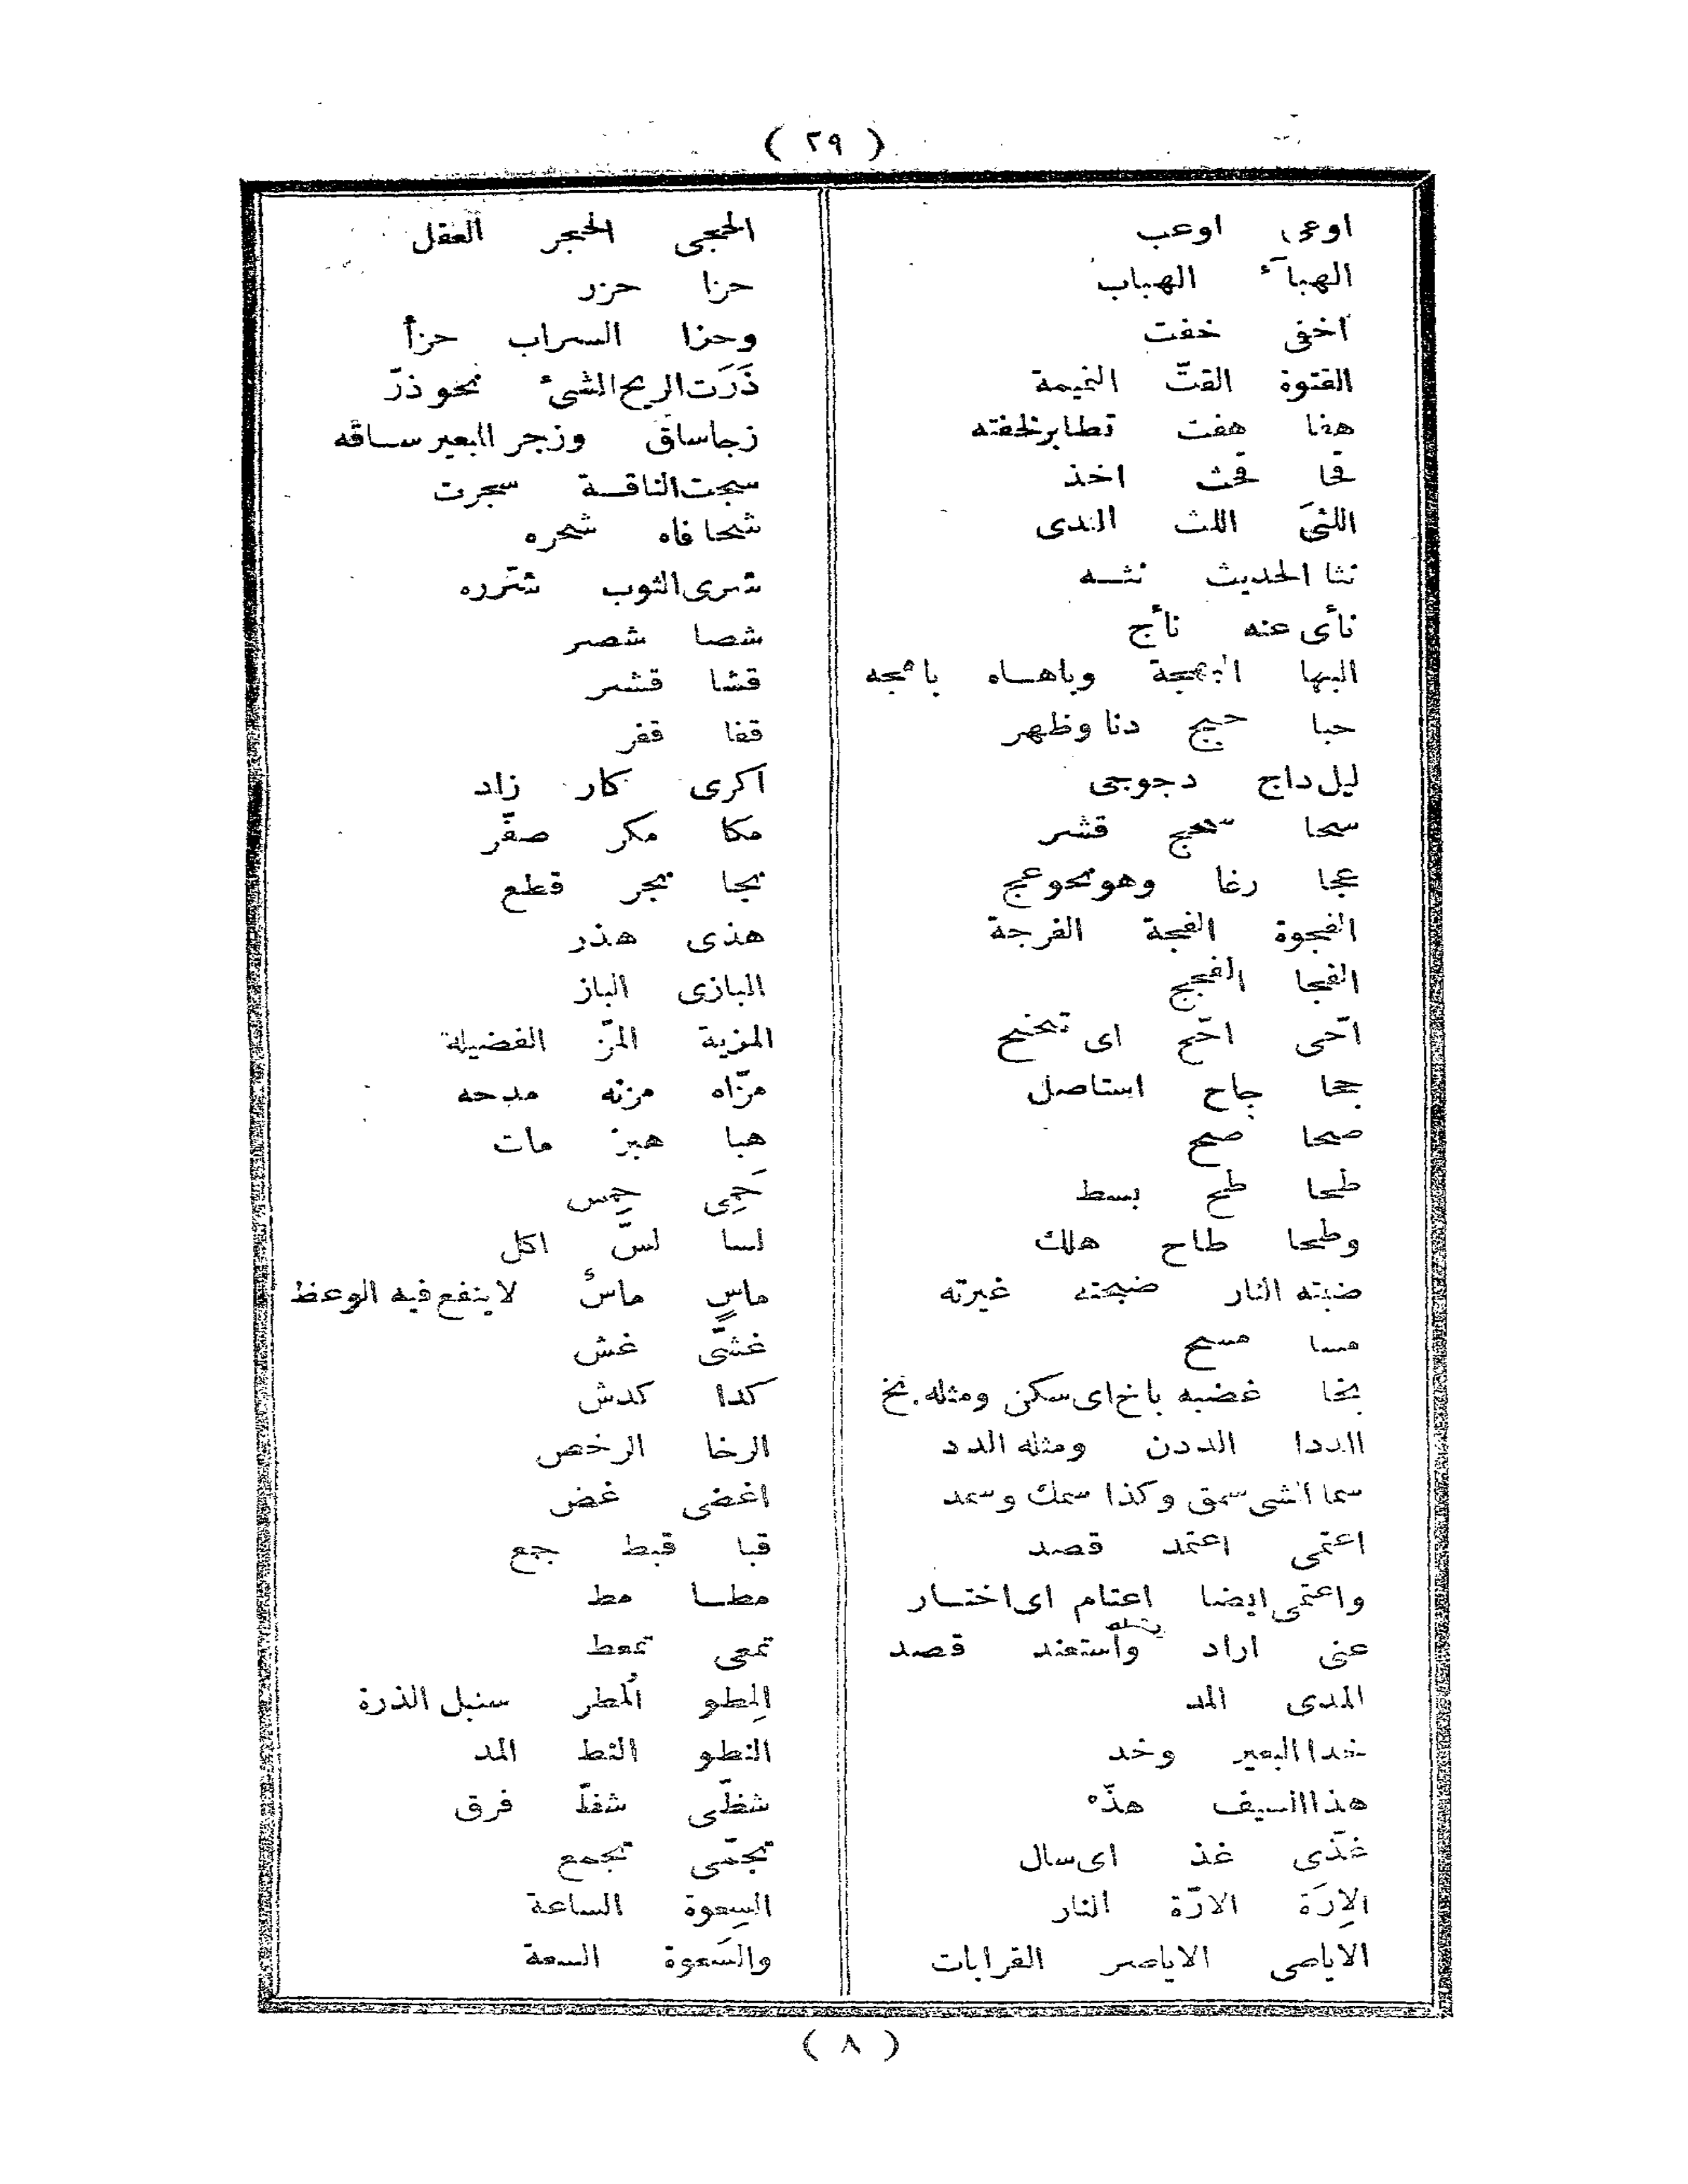 ( ٢٩ )
اوعى اوعب
الهبآء الهباب
اخفى خفت
القتوة القتّ النميمة
هفا هفت تطاير لخفته
قحا قحث اخذ
اللثى اللث الندى
نثا الحديث نثه
نأى عنه نأج
البها البهجة وباهاه باهجه
حبا حبج دنا وظهر
ليل داج دجوجى
سحا سحج قشر
عجا رغا وهو نحو عج
الفجوة الفجة الفرجة
الفجا الفجج
احّى احّح اى تنحنح
جحا جاح استاصل
صحا صح
طحا طح بسط
وطحا طاح هلك
ضبته النار ضبحته غيرته
مسا مسح
بخا غضبه باخ اى سكن ومثله بخ
الددا الددن ومثله الدد
سما الشى سمق وكذا سمك وسمد
اعتمى اعتمد قصد
واعتمى ايضا اعتام اى اختار
عنى اراد واستعند قصد
المدى المد
خدا البعير وخد
هذا السيف هذّه
غذّى غذ اى سال
الإرَة الارّة النار
الاياصى الاياصر القرابات
الحجى الحجر العقل
حزا حزر
وحزا السراب حزأ
ذَرَت الريح الشىء نحو ذرّ
زجا ساق وزجر البعير ساقه
سجت الناقة سجرت
شحا فاه شحره
شرى الثوب شرّره
شصا شصر
قشا قشر
قفا قفر
اكرى كار زاد
مكا مكر صفّر
نجا نجر قطع
هذى هذر
البازى الباز
المزية المزّ الفضيلة
مزّاه مزنه مدحه
هبا هبز مات
حَمِى حمِس
لسا لسّ اكل
ماسٍ ماسٌ لا ينفع فيه الوعظ
غشّى غش
كدا كدش
الرخا الرخص
اغضى غض
قبا قبط جمع
مطا مط
تمعى تمعط
المِطو المُطر سنبل الذرة
النطو النط المد
شظّى شظّ فرق
تجمّى تجمع
السِعوة الساعة
والسَعوة السعة
( ٨ )